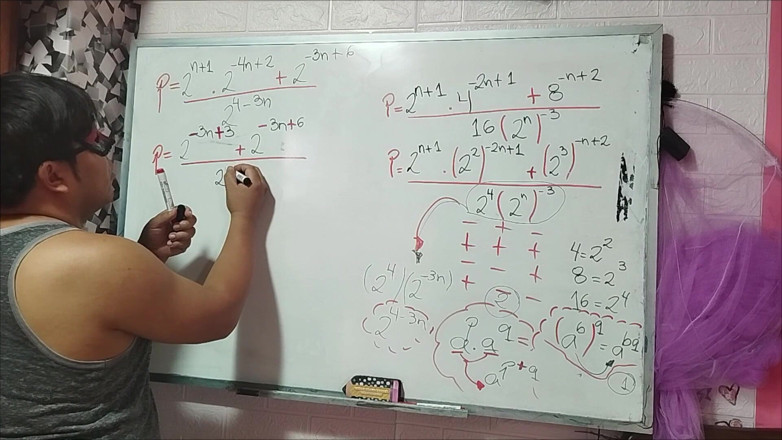 P = 2^{n+1} . 2^{-4n+2} + 2^{-3n+6}
2^{4-3n}
P = 2^{-3n+3} + 2^{-3n+6}
2
P = 2^{n+1} . 4^{-2n+1} + 8^{-n+2}
16 (2^n)^{-3}
P = 2^{n+1} . (2^2)^{-2n+1} + (2^3)^{-n+2}
2^4 (2^n)^{-3}
- + -
+ + +
- - +
+ - -
(2^4)(2^{-3n})
2^{4-3n}
4 = 2^2
8 = 2^3
16 = 2^4
2
a^p . a^q =
a^{p+q}
(a^b)^q = a^{bq}
1